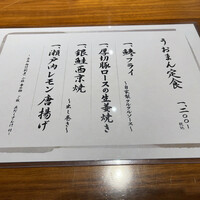 うおまん定食 一、二〇〇
一、鯵フライ
〜自家製タルタルソース〜
一、厚切豚ロースの生姜焼き
一、銀鮭西京焼
〜出し巻き〜
一、瀬戸内レモン唐揚げ